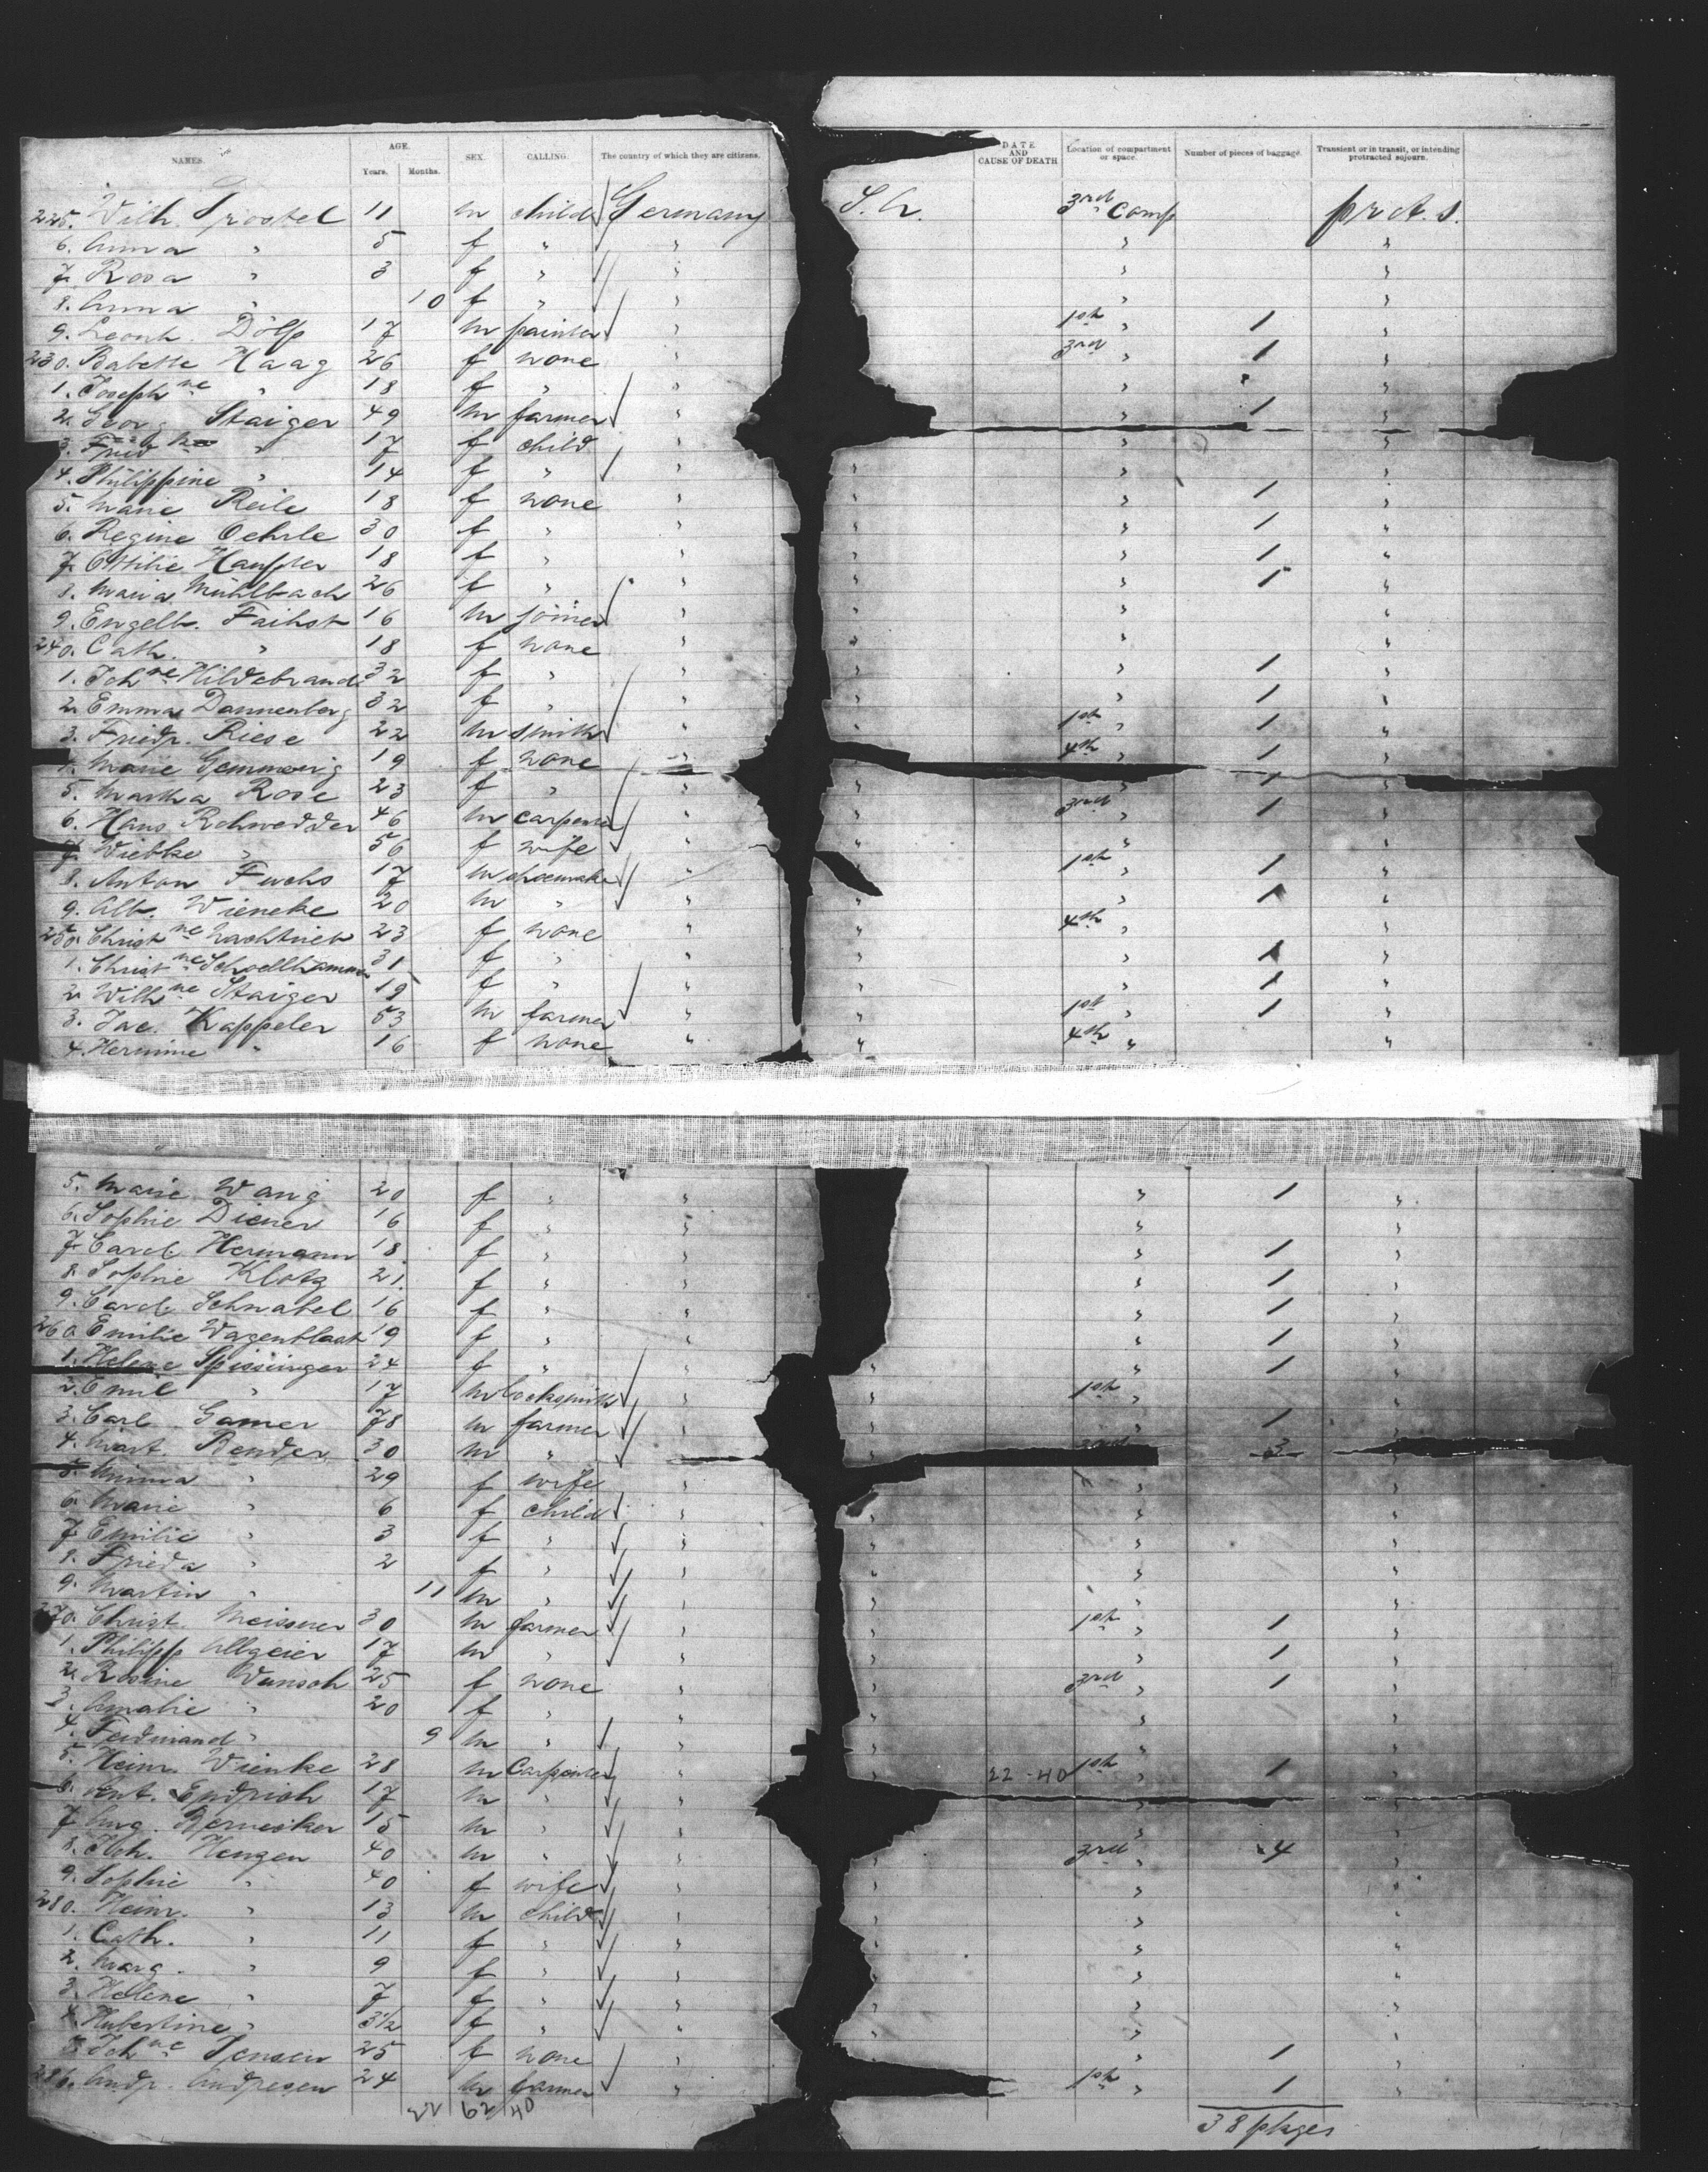 NAMES. AGE. Years. Months. SEX. CALLING. The country of which they are citizens. DATE AND CAUSE OF DEATH Location of compartment or space. Number of pieces of baggage. Transient or in transit, or intending protracted sojourn.
225. Wilh. Trostel 11 m child Germany 3rd Comp prot. s.
6. Anna " 5 f " " " "
7. Rosa " 3 f " " " "
8. Anna " 10 f " " "
9. Leonh. Dölp 17 m painter " 1st " 1 "
230. Babette Haag 26 f none " 3rd " 1 "
1. Josephne " 18 f " " " "
2. Georg Staiger 49 m farmer " " 1 "
3. " 17 f child " " "
4. Philippine " 14 f " " " " "
5. Marie Reile 18 f none " " " 1 "
6. Regine Oehrle 30 f " " " " 1 "
7. Ottilie 18 f " " " " 1 "
8. Maria Mühlbach 26 f " " " " 1 "
9. Engelb. Faihst 16 m joiner " " " "
240. Cath. " 18 f none " " " "
1. Johne Hildebrand 32 f " " " " 1 "
2. Emma Dannenberg 32 f " " " " 1 "
3. Friedr. Riese 22 m smith " " 1st " 1 "
4. Marie Gemmrig 19 f none " 4th " 1 "
5. Martha Rose 23 f " " " 1 "
6. Hans Rehwedder 46 m carpenter " " 3rd " 1 "
7. Wiebke " 56 f wife " " "
8. Anton Fuchs 17 m shoemaker " 1st " 1 "
9. Alb. Wieneke 20 m " " " " 1 "
250. Christne Nachtrieb 23 f none " " 4th " "
1. Christne Schoellhammer 31 f " " " " 1 "
2. Wilhne Staiger 19 f " " " " 1 "
3. Jac. Kappeler 53 m farmer " " 1st " 1 "
4. Hermine " 16 f none " " 4th " "
5. Marie Wang 20 f " " " 1 "
6. Sophie Diener 16 f " " " "
7. Carol. Hermann 18 f " " " 1 "
8. Sophie Klotz 21 f " " " 1 "
9. Carol. Schnabel 16 f " " " 1 "
260. Emilie Wagenblast 19 f " " " 1 "
1. Helene Speissinger 24 f " " " " 1 "
2. Emil " 17 m locksmith " " 1st " "
3. Carl Gamer 78 m farmer " " " 1 "
4. Mart. Bender 30 m " " " 3 "
5. Minna " 29 f wife " " "
6. Marie " 6 f child " " "
7. Emilie " 3 f " " " " "
8. Frieda " 2 f " " " " "
9. Martin " 11 m " " " " "
270. Christ. Meissner 30 m farmer " " 1st " 1 "
1. Philipp Allgeier 17 m " " " " 1 "
2. Rosine Wunsch 25 f none " " 3rd " 1 "
3. Amalie " 20 f " " " " "
4. Ferdinand " 9 m " " " " "
5. Heinr. Wienke 28 m Carpenter " " 22-40 1st " 1 "
6. Ant. Endrich 17 m " " " "
7. Aug. 15 m " " " " "
8. Joh. Hengen 40 m " " " 3rd " 4 "
9. Sophie " 40 f wife " " " "
280. Heinr. " 13 m child " " " "
1. Cath. " 11 f " " " " "
2. Marg. " 9 f " " " " "
3. Helene " 7 f " " " " "
4. Hubertine " 3½ f " " " " "
5. Johne Jensen 25 f none " " 1 "
286. Andr. Andresen 24 m farmer " 1st " 1 "
22 62 40 38 pkges